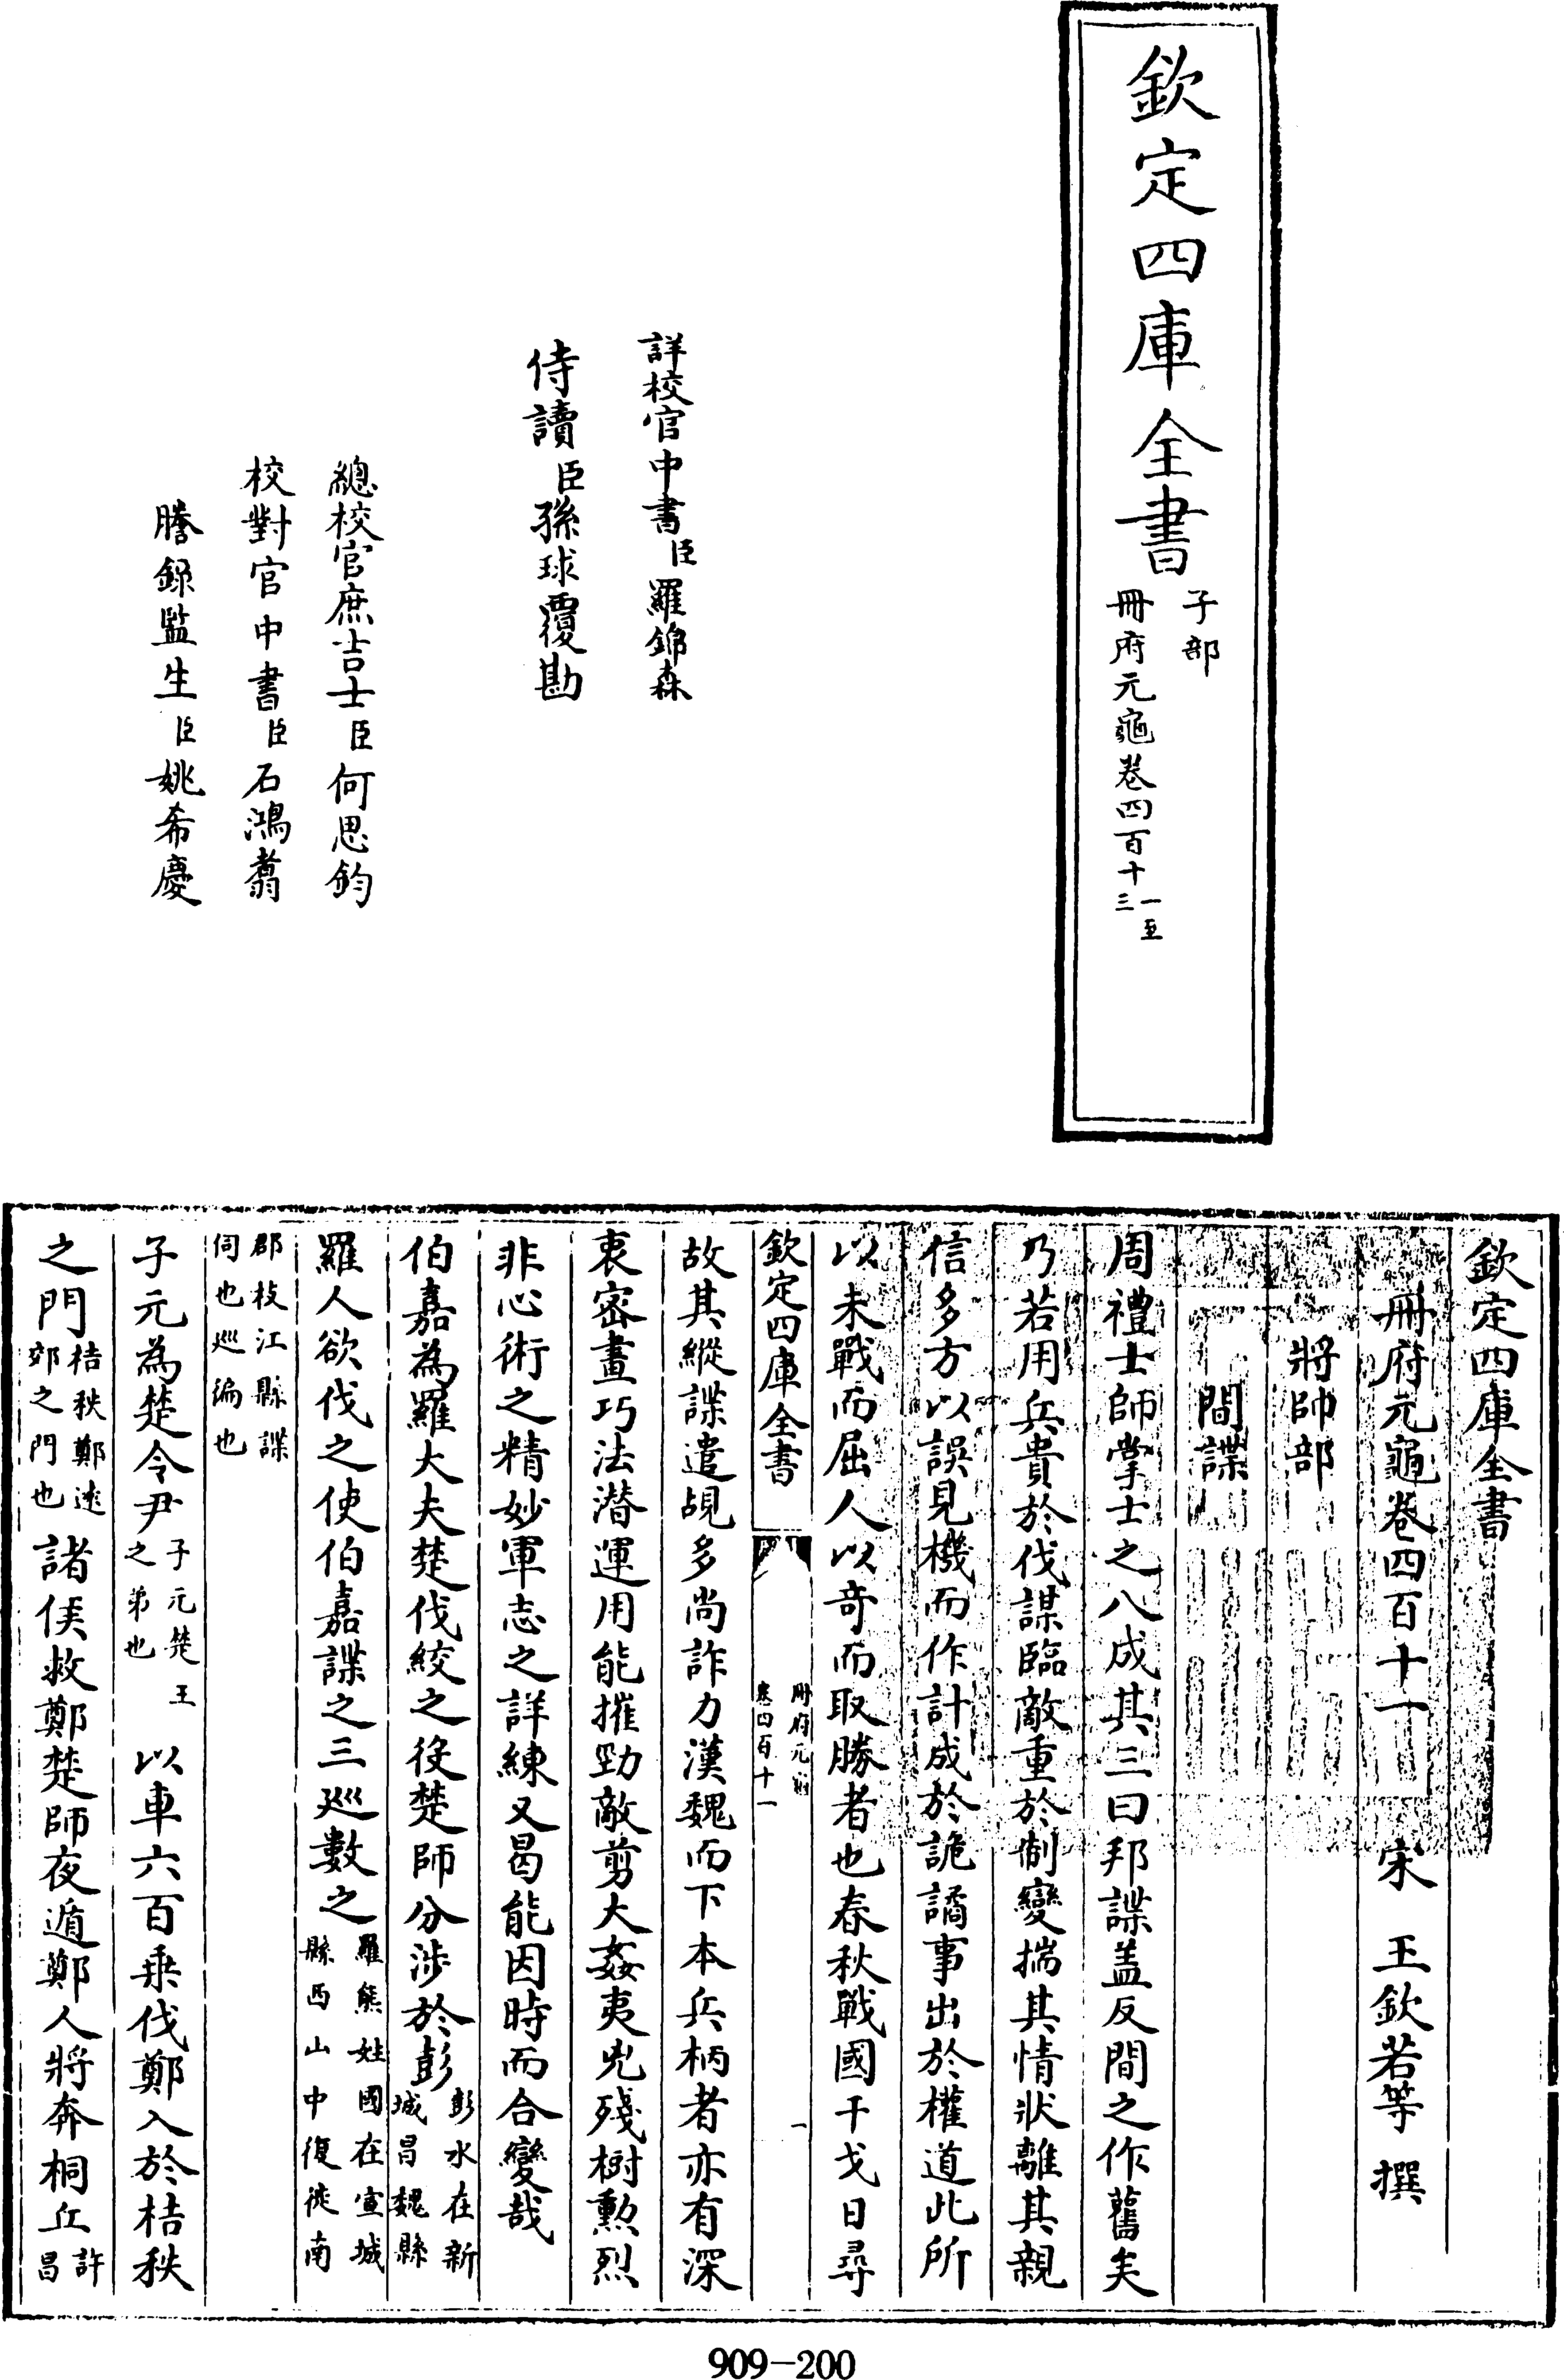 欽定四庫全書
子部
冊府元龜卷四百十一至三
詳校官中書臣羅錦森
侍讀臣孫球覆勘
總校官庶吉士臣何思鈞
校對官中書臣石鴻翥
謄錄監生臣姚希慶
欽定四庫全書
冊府元龜卷四百十一 宋 王欽若等 撰
將帥部
間諜
周禮士師掌士之八成其三曰邦諜盖反間之作舊矣
乃若用兵貴於伐謀臨敵重於制變揣其情狀離其親
信多方以誤見機而作計成於詭譎事出於權道此所
以未戰而屈人以竒而取勝者也春秋戰國干戈日尋
欽定四庫全書
冊府元龜
卷四百十一
一
故其縱諜遣覘多尚詐力漢魏而下本兵柄者亦有深
衷密畫巧法潛運用能摧勁敵剪大姦夷兇殘樹勲烈
非心術之精妙軍志之詳練又曷能因時而合變哉
伯嘉為羅大夫楚伐絞之役楚師分涉於彭彭水在新
城昌魏縣
羅人欲伐之使伯嘉諜之三巡數之羅熊姓國在宣城
縣西山中復徙南
郡枝江縣諜
伺也廵徧也
子元為楚令尹子元楚王
之弟也以車六百乗伐鄭入於桔秩
之門桔秩鄭逺
郊之門也諸侯救鄭楚師夜遁鄭人將奔桐丘許
昌
909-200